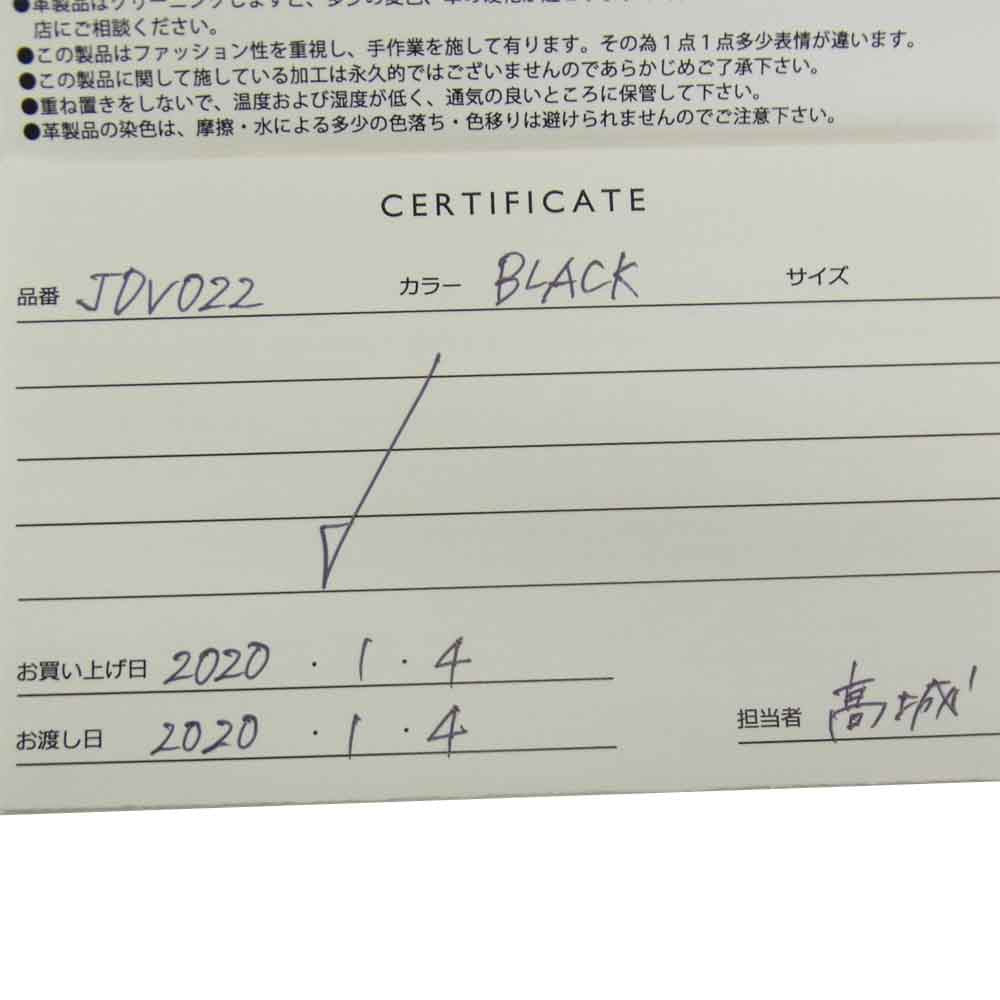 店にご相談ください。
●この製品はファッション性を重視し、手作業を施して有ります。その為１点１点多少表情が違います。
●この製品に関して施している加工は永久的ではございませんのであらかじめご了承下さい。
●重ね置きをしないで、温度および湿度が低く、通気の良いところに保管して下さい。
●革製品の染色は、摩擦・水による多少の色落ち・色移りは避けられませんのでご注意下さい。
CERTIFICATE
品番 JDV022 カラー BLACK サイズ
お買い上げ日 2020 ・ 1 ・ 4
お渡し日 2020 ・ 1 ・ 4 担当者 高城